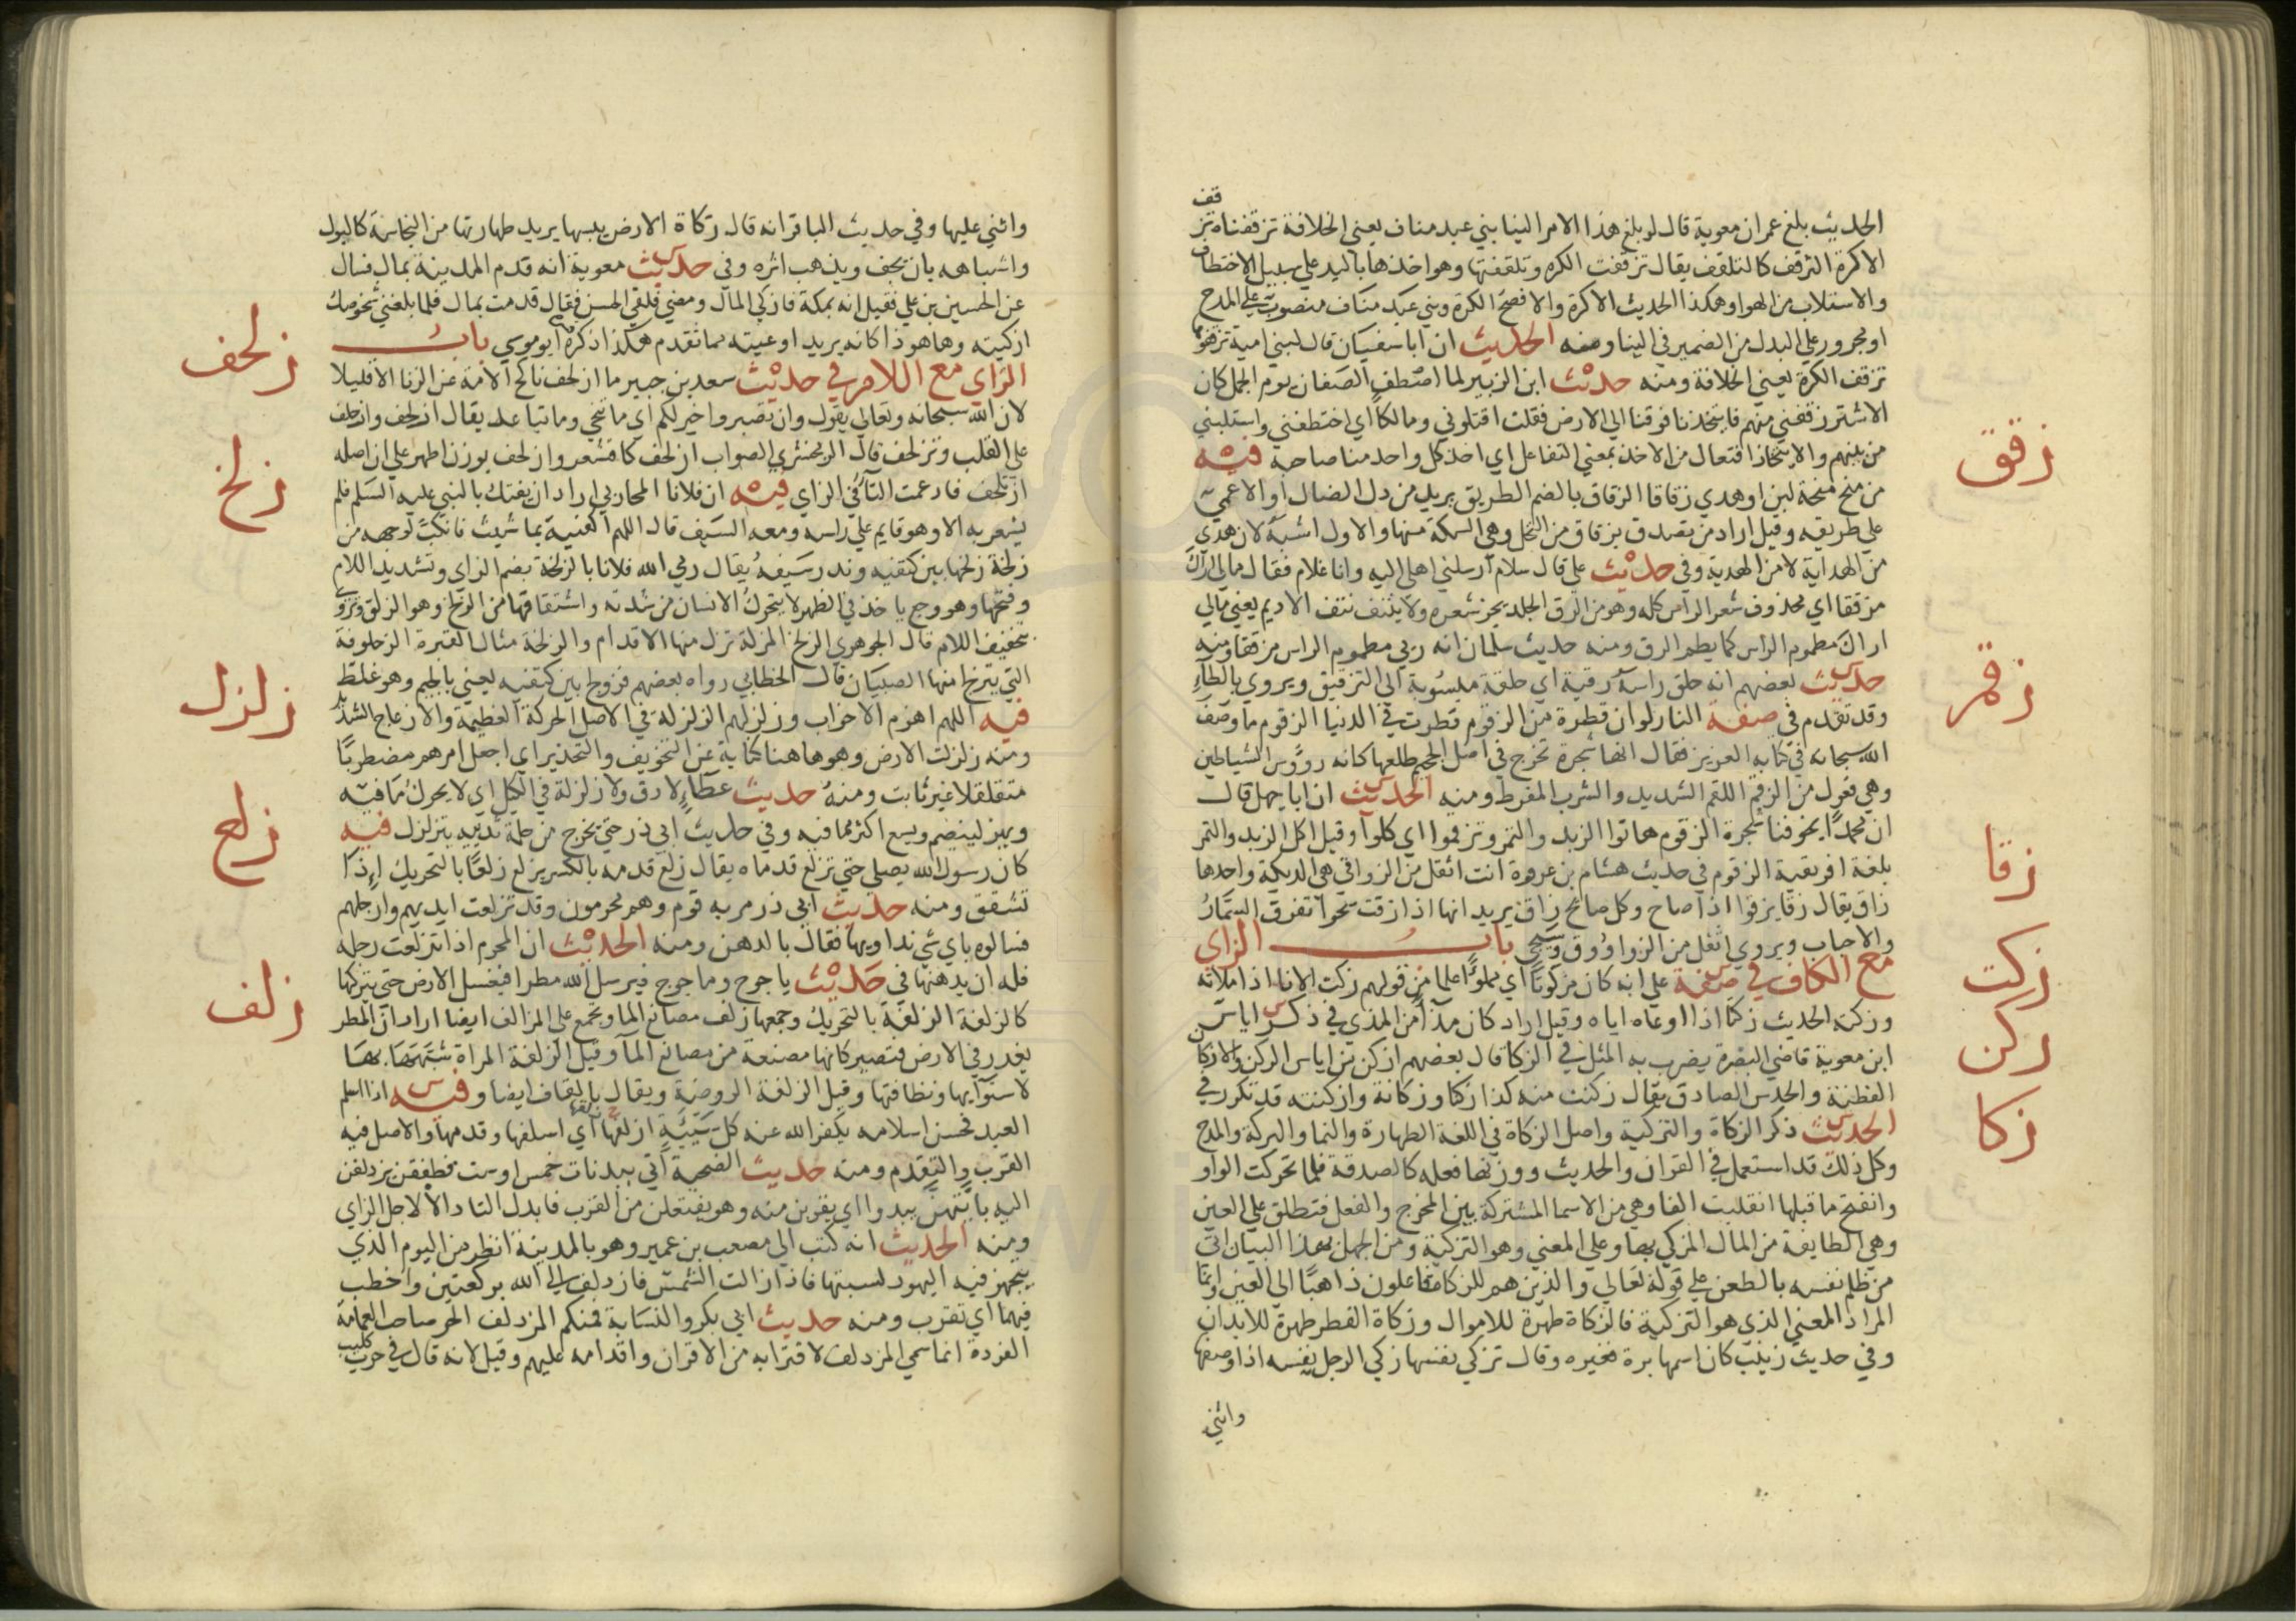 قف
الحديث بلغ عمر ان معوية قال لو بلغ هذا الامر الينا بني عبد مناف يعني الخلافة تزقفناه تز
الاكرة التزقف كالتلقف يقال تزقفت الكرة وتلقفتها وهو اخذها باليد علي سبيل الاختطاف
والاستلاب من الهوا وهكذا الحديث الاكرة والافصح الكرة وبني عبد مناف منصوب علي المدح
او مجرور علي البدل من الضمير في الينا ومنه الحديث ان ابا سفيان قال لبني امية تزقفوها
تزقف الكرة يعني الخلافة ومنه حديث ابن الزبير لما اصطف الصفان يوم الجمل كان
الاشتر زقفني منهم فايتخذنا فوقنا الي الارض فقلت اقتلوني ومالكا اي اختطفني واستلبني
من بينهم والايتخاذ افتعال من الاخذ بمعني التفاعل اي اخذ كل واحد منا صاحبه فيه
زقق
من منح منحة لبن او هدي زقاقا الزقاق بالضم الطريق يريد من دل الضال او الاعمي
علي طريقه وقيل اراد من تصدق بزقاق من النخل وهي السكة منها والاول اشبه لان هدي
من الهداية لا من الهدية وفي حديث علي قال سلام ارسلني اهلي اليه وانا غلام فقال مالي اراك
مزققا اي محذوف شعر الراس كله وهو من الزق الجلد يجز شعره ولا ينتف نتف الاديم يعني مالي
اراك مطموم الراس كما يطم الزق ومنه حديث سلمان انه رئي مطموم الراس مزققا ومنه
حديث بعضهم انه حلق راسه زقية اي حلقة منسوبة الي التزقيق ويروي بالطاء
زقم
وقد تقدم في صفة النار لو ان قطرة من الزقوم قطرت في الدنيا الزقوم ما وصف
الله سبحانه في كتابه العزيز فقال انها شجرة تخرج في اصل الجحيم طلعها كانه رؤوس الشياطين
وهي فعول من الزقم اللقم الشديد والشرب المفرط ومنه الحديث ان ابا جهل قال
ان محمدا يخوفنا شجرة الزقوم هاتوا الزبد والتمر وتزقموا اي كلوا وقيل اكل الزبد والتمر
زقا
بلغة افريقية الزقوم في حديث هشام بن عروة انت اثقل من الزواقي هي الديكة واحدها
زاق يقال زقا يزقوا اذا صاح وكل صائح زاق يريد انها اذا زقت سحرا تفرق السمار
والاحباب ويروي اثقل من الزاووق وسيجي باب الزاي
زكت
مع الكاف في صفة علي انه كان مزكوتا اي مملوا علما من قولهم زكت الانا اذا ملاته
وزكته الحديث زكتا اذا اوعاه اياه وقيل اراد كان مذآ من المذي في ذكر اياس
زكن
ابن معوية قاضي البصرة يضرب به المثل في الزكا قال بعضهم ازكن من اياس الزكن والازكان
الفطنة والحدس الصادق يقال زكنت منه كذا زكنا وزكانة وازكنته قد تكرر في
زكا
الحديث ذكر الزكاة والتزكية واصل الزكاة في اللغة الطهارة والنما والبركة والمدح
وكل ذلك قد استعمل في القران والحديث ووزنها فعله كالصدقة فلما تحركت الواو
وانفتح ما قبلها انقلبت الفا وهي من الاسما المشتركة بين المخرج والفعل فتطلق علي العين
وهي الطايفة من المال المزكي بها وعلي المعني وهو التزكية ومن الجهل بهذا البيان اتي
من ظلم نفسه بالطعن علي قوله تعالي والذين هم للزكاة فاعلون ذاهبا الي العين وانما
المراد المعني الذي هو التزكية فالزكاة طهرة للاموال وزكاة الفطر طهرة للابدان
وفي حديث زينب كان اسمها برة فغيره وقال تزكي نفسها زكي الرجل نفسه اذا وصفها
واثني
واثني عليها وفي حديث الباقر انه قال زكاة الارض يبسها يريد طهارتها من النجاسة كالبول
واشباهه بان يجف ويذهب اثره وفي حديث معوية انه قدم المدينة بمال فسال
عن الحسين بن علي فقيل انه بمكة فازكي المال ومضي فلقي الحسن فقال قدمت بمال فلما بلغني شخوصك
ازكيته وها هو ذا كانه يريد اوعيته مما تقدم هكذا ذكره ابو موسي باب
زلحف
الزاي مع اللام في حديث سعيد بن جبير ما ازلحف ناكح الامة عن الزنا الا قليلا
لان الله سبحانه وتعالي يقول وان تصبروا خير لكم اي ما تنحي وما تباعد يقال ازلحف وازحلف
علي القلب وتزلحف قال الزمخشري الصواب ازلحف كاقشعر وازلحف بوزن اطهر علي ان اصله
زلخ
ازتلحف فادغمت التا في الزاي فيه ان فلانا المحاربي اراد ان يفتك بالنبي عليه السلم فلم
يشعر به الا وهو قايم علي راسه ومعه السيف قال اللهم اكفنيه بما شيت فانكب لوجهه من
زلخة زلخها بين كتفيه وندر سيفه يقال رمي الله فلانا بالزلخة بضم الزاي وتشديد اللام
وفتحها وهو وجع ياخذ في الظهر لا يتحرك الانسان من شدته واشتقاقها من الزلخ وهو الزلق ويروي
بتخفيف اللام قال الجوهري الزلخ المزلة تزل منها الاقدام والزلخة مثال القبرة الزحلوفة
التي يتزلج منها الصبيان قال الخطابي رواه بعضهم فزولج بين كتفيه يعني بالجيم وهو غلط
زلزل
فيه اللهم اهزم الاحزاب وزلزلهم الزلزلة في الاصل الحركة العظيمة والازعاج الشديد
ومنه زلزلت الارض وهو هاهنا كناية عن التخويف والتحذير اي اجعل امرهم مضطربا
متقلقلا غير ثابت ومنه حديث عطاء لا دق ولا زلزلة في الكيل اي لا يحرك ما فيه
ويهز لينضم ويسع اكثر مما فيه وفي حديث ابي ذر حتي يخرج من حلمة ثدييه يتزلزل فيه
زلع
كان رسول الله يصلي حتي تزلع قدماه يقال زلع قدمه بالكسر يزلع زلعا بالتحريك اذا
تشقق ومنه حديث ابي ذر مر به قوم وهم محرمون وقد تزلعت ايديهم وارجلهم
فسالوه باي شي نداويها فقال بالدهن ومنه الحديث ان المحرم اذا تزلعت رجله
زلف
فله ان يدهنها في حديث ياجوج وماجوج فيرسل الله مطرا فيغسل الارض حتي يتركها
كالزلفة الزلفة بالتحريك وجمعها زلف مصانع الما وتجمع علي المزالف ايضا اراد ان المطر
يغدر في الارض فتصير كانها مصنعة من مصانع الما وقيل الزلفة المراة شبهها بها
لاستوايها ونظافتها وقيل الزلفة الروضة ويقال بالقاف ايضا وفيه اذا اسلم
العبد فحسن اسلامه يكفر الله عنه كل سيية ازلفها اي اسلفها وقدمها والاصل فيه
القرب والتقدم ومنه حديث الضحية اتي ببدنات خمس او ست فطفقن يزدلفن
اليه بايتهن يبدوا اي يقربن منه وهو يفتعلن من القرب فابدل التا دالا لاجل الزاي
ومنه الحديث انه كتب الي مصعب بن عمير وهو بالمدينة انظر من اليوم الذي
يتجهز فيه اليهود لسبتها فاذا زالت الشمس فازدلف الي الله بركعتين واخطب
فيهما اي تقرب ومنه حديث ابي بكر والنسابة فمنكم المزدلف الحر صاحب العمامة
الفردة انما سمي المزدلف لاقترابه من الاقران واقدامه عليهم وقيل لانه قال في حرب كليب